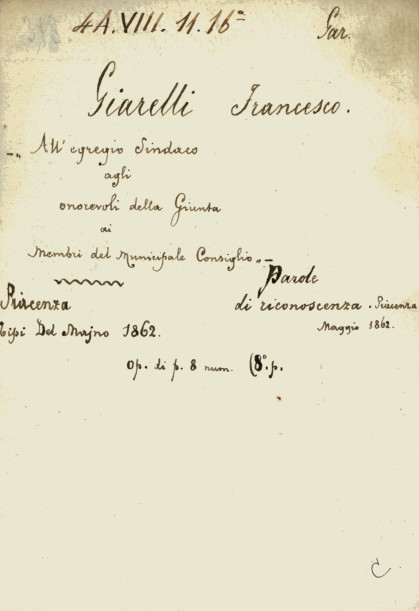 4A.VIII.11.16=
Gar.
Giarelli Francesco.
-„ All' egregio Sindaco
agli
onorevoli della Giunta
ai
Membri del Municipale Consiglio„-
Parole
di riconoscenza. Piacenza
Maggio 1862.
Piacenza
Tipi Del Majno 1862.
Op. di p. 8 num. (8°. p.
C